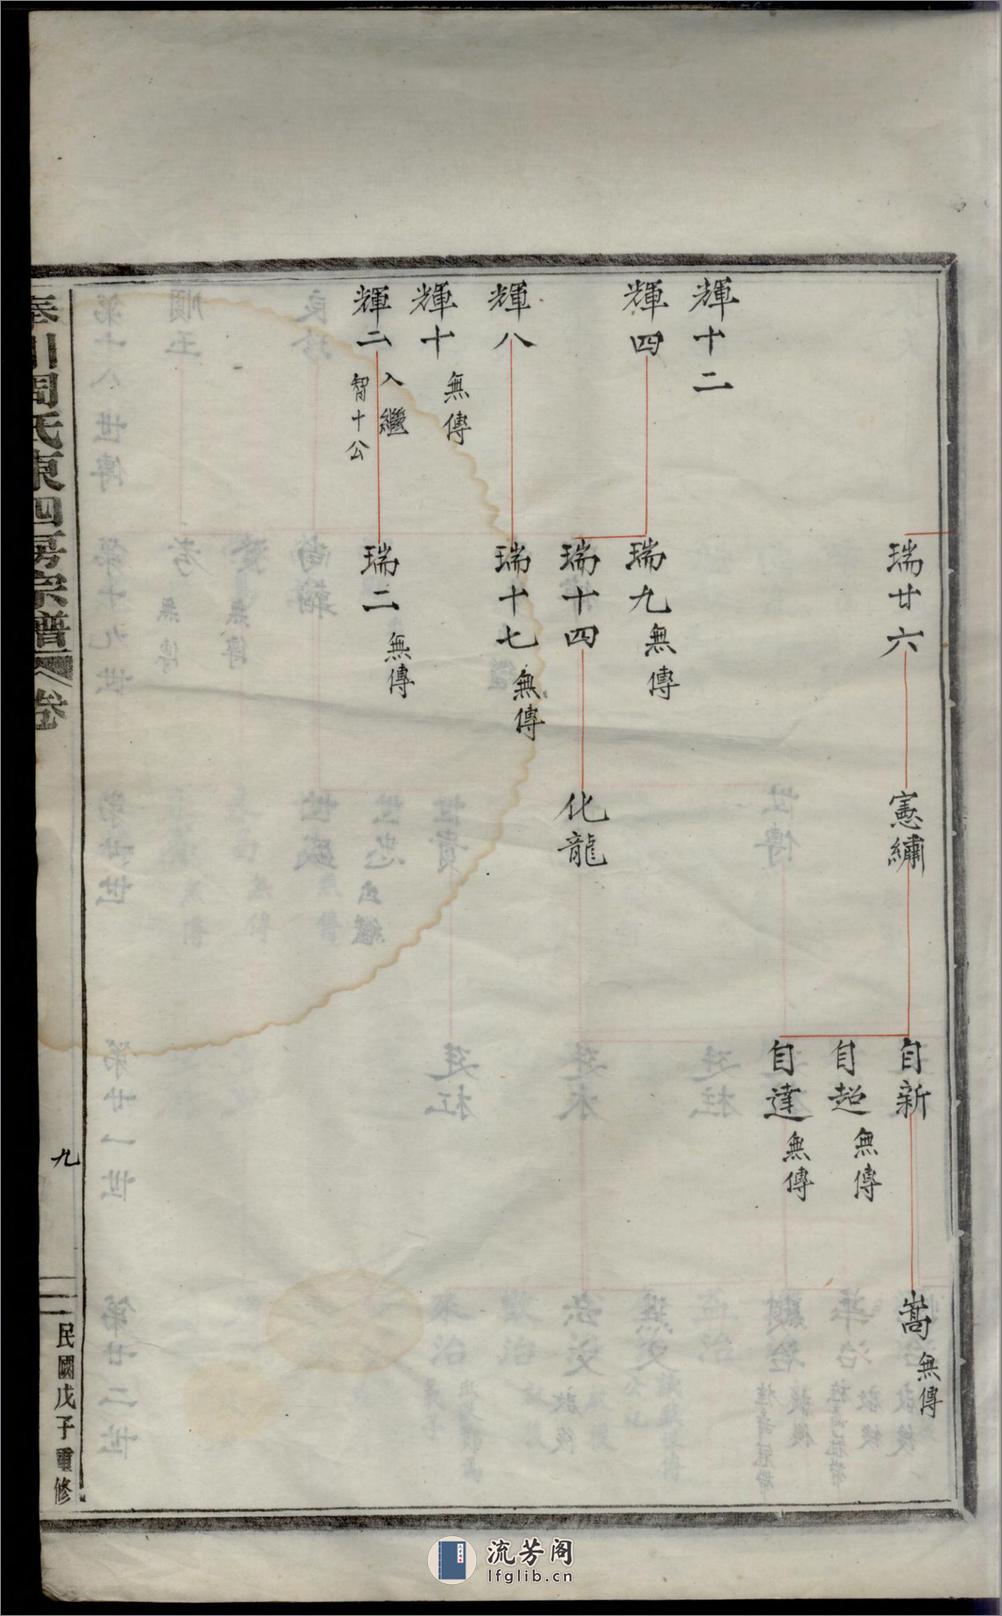 輝十二
輝四
輝八
輝十
無傳
輝二
入繼
智十公
瑞廿六
瑞九
無傳
瑞十四
瑞十七
無傳
瑞二
無傳
憲繡
化龍
自新
自超
無傳
自達
無傳
嵩
無傳
川周氏東四房宗譜
卷
九
民國戊子重修
流芳阁
lfglib.cn